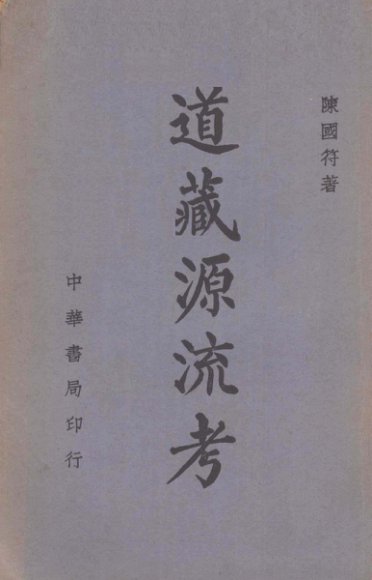 陳國符著
道藏源流考
中華書局印行